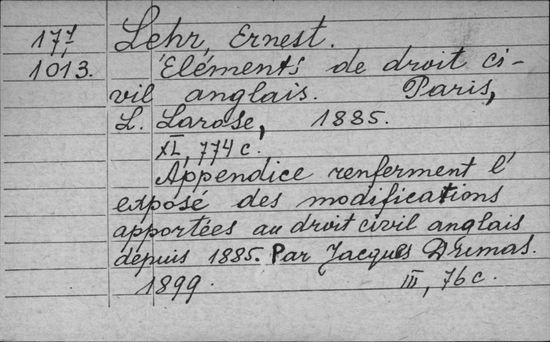 177 Lehr, Ernest.
1013. Eléments de droit ci-
vil anglais. Paris,
L. Larose, 1885.
XL, 774 c.
Appendice renferment l'
exposé des modifications
apportées au droit civil anglais
depuis 1885. Par Jacques Dumas.
1899. III, 76 c.